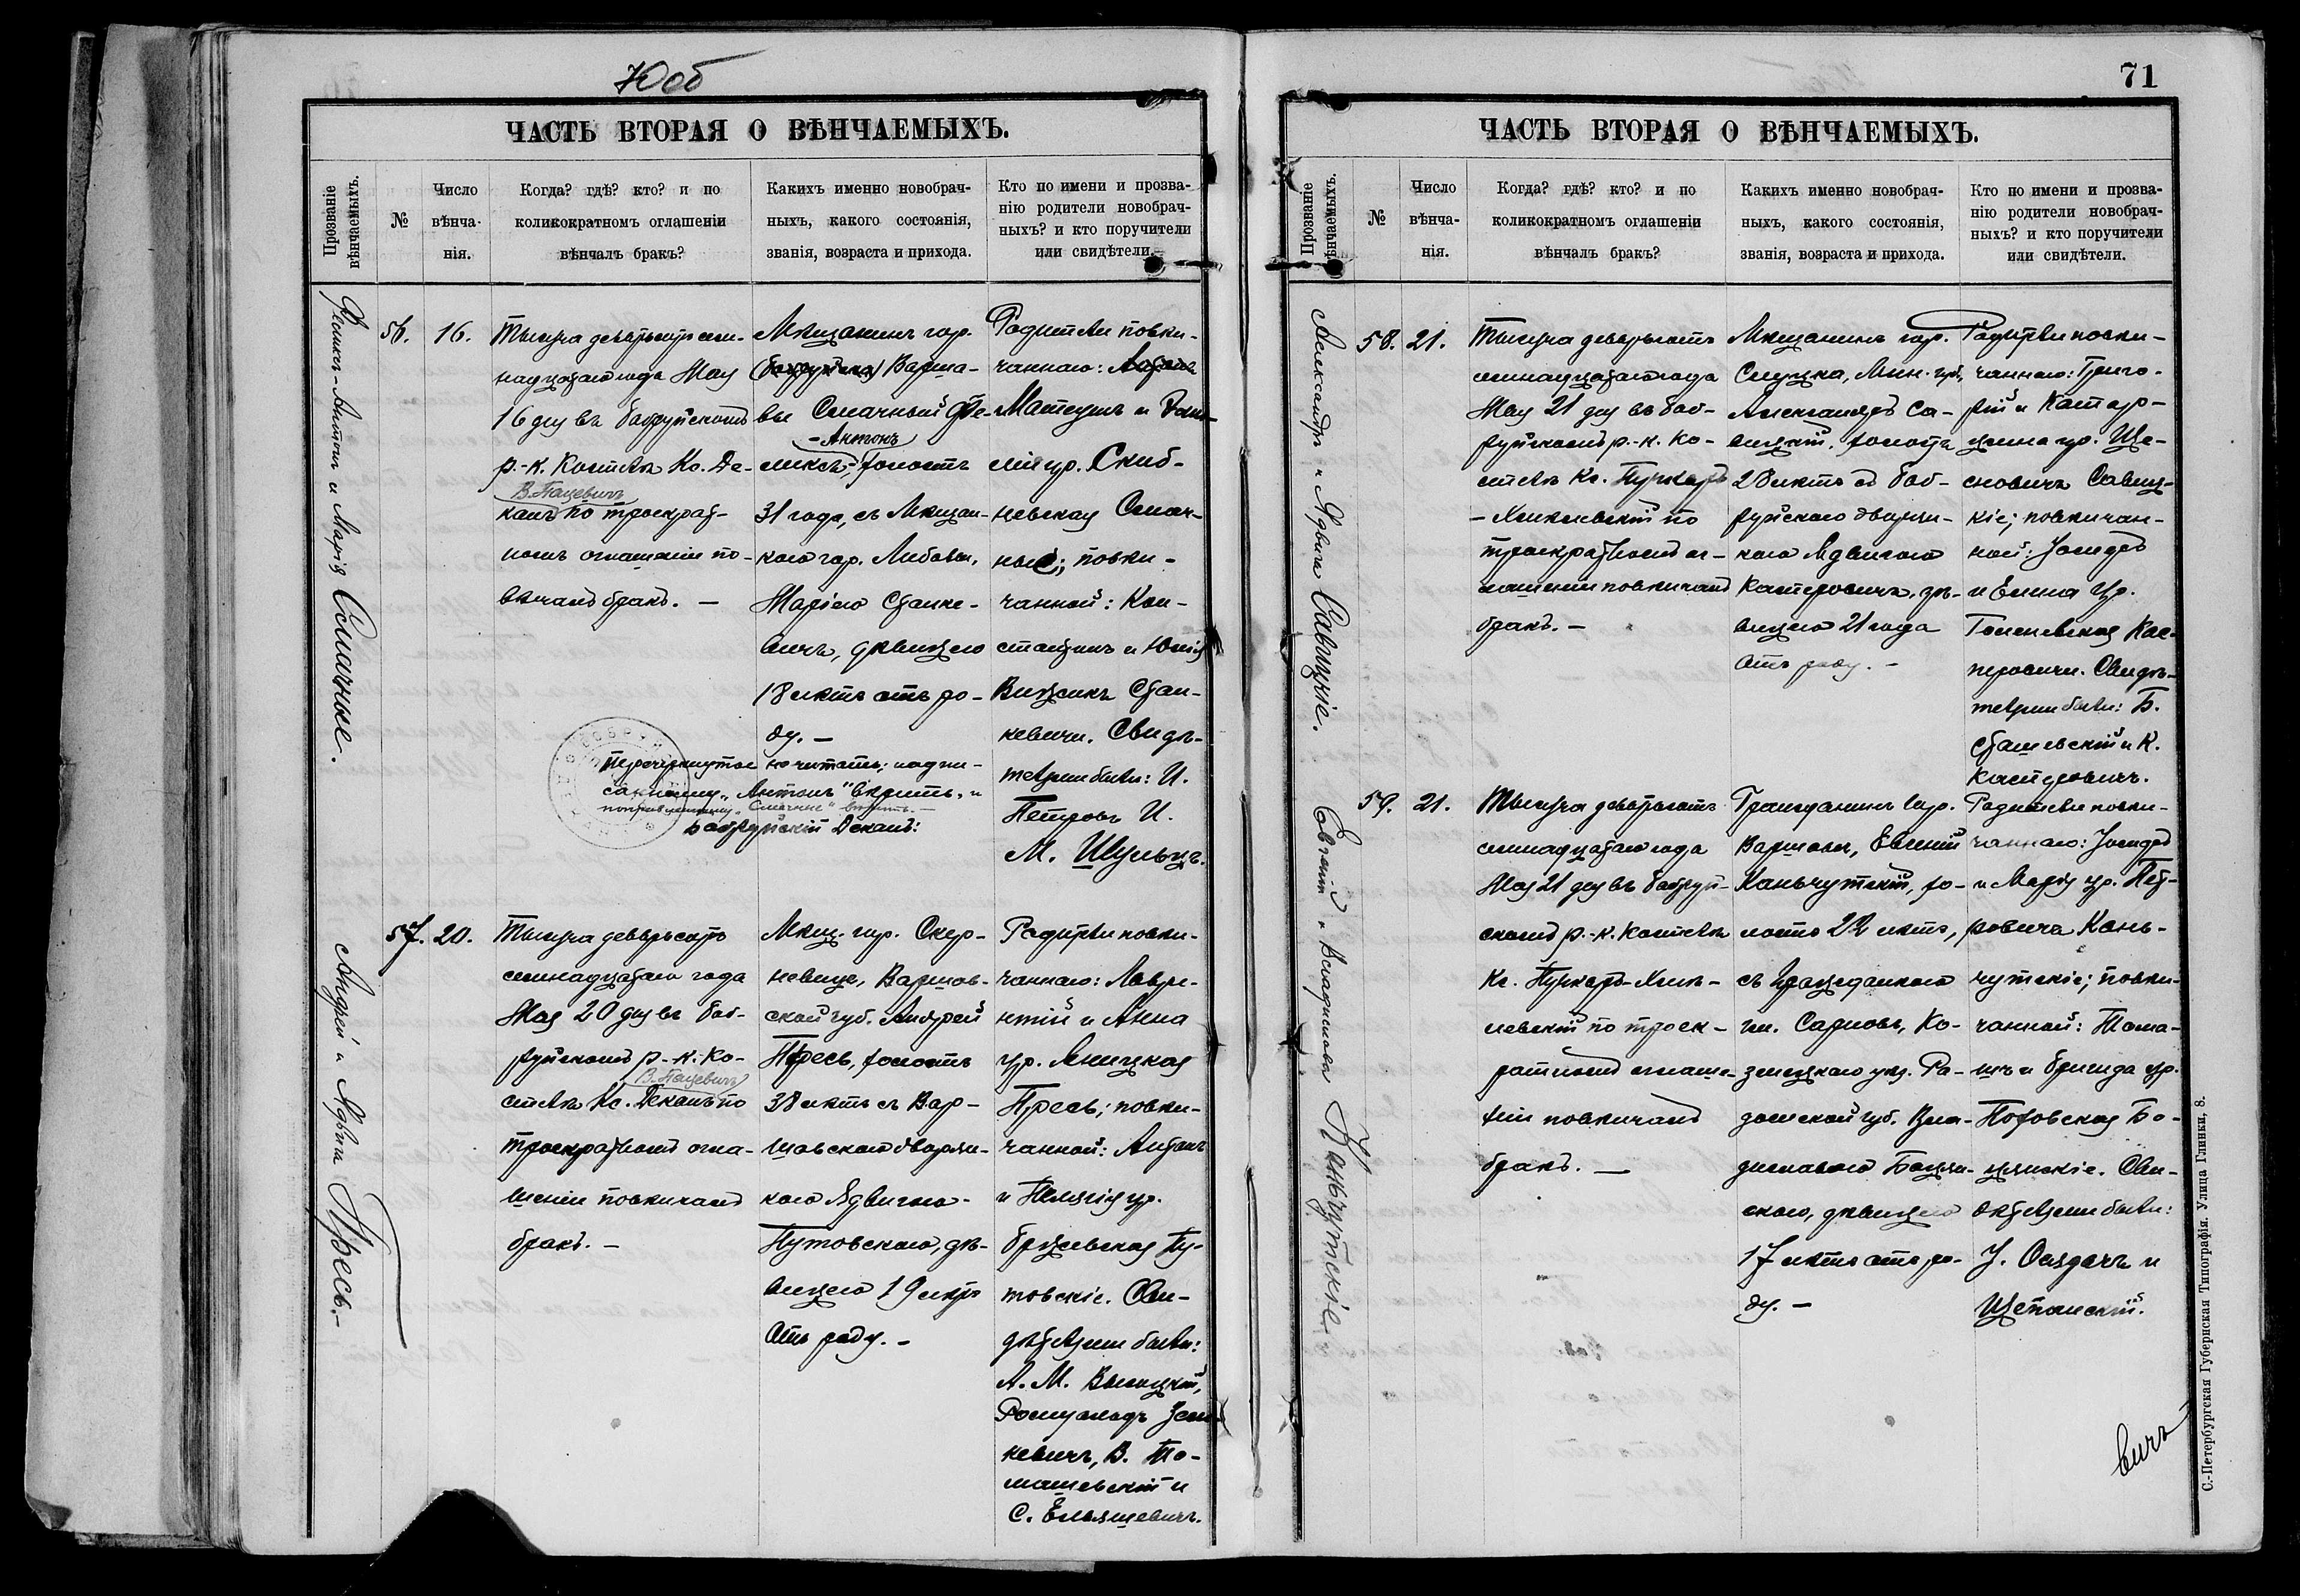 Юоб
ЧАСТЬ ВТОРАЯ О ВѢНЧАЕМЫХЪ.
Прозваніе
вѣнчаемыхъ.
№
Число
вѣнча-
нія.
Когда? гдѣ? кто? и по
коликократномъ оглашеніи
вѣнчалъ бракъ?
Какихъ именно новобрач-
ныхъ, какого состоянія,
званія, возраста и прихода.
Кто по имени и прозва-
нію родители новобрач-
ныхъ? и кто поручители
или свидѣтели.
Феликсъ-Антонъ и Марія Смачные.
56.
16.
Тысяча девятьсотъ сем-
надцатаго года Мая
16 дня въ Бобруйскомъ
р.-к. Костелѣ Кс. Де-
В. Пацевичъ
канъ по троекрат-
номъ оглашеніи по-
вѣнчалъ бракъ. —
Мѣщанинъ гор.
Варша-
вы Смачный Фе-
-Антонъ
ликсъ, холостъ
31 года, съ Мѣщан-
кою гор. Любавы,
Маріею Станке-
вичъ, дѣвицею
18 лѣтъ отъ ро-
ду. —
Родители повѣн-
чаннаго:
Матеушъ и
ур. Скиб-
невская Смач-
ные; повѣн-
чанной: Кон-
стантинъ и Юлія
Стан-
кевичи. Свидѣ-
тели были: И.
Петровъ И.
М. Шульцъ.
Перечеркнутое не читать; надпи-
санному "Антонъ" вѣрить, и
поправленному "Смачные" вѣрить. —
Бобруйскій Деканъ:
Андрей и Ядвига Пресь.-
57.
20.
Тысяча девятьсотъ
семнадцатаго года
Мая 20 дня въ Боб-
руйскомъ р.-к. Ко-
В. Пацевичъ
стелѣ Кс. Деканъ по
троекратномъ огла-
шеніи повѣнчалъ
бракъ. —
Мѣщ. гор. Скер-
невице, Варшав-
ской губ. Андрей
Пресь, холостъ
38 лѣтъ съ Вар-
шавскою дворян-
кою Ядвигою
Путовскою, дѣ-
вицею 19 лѣтъ
отъ роду. —
Родители повѣн-
чаннаго: Лавре-
нтій и Анна
ур. Яницкая
Пресь; повѣн-
чанной: Антонъ
и Пелагія ур.
Пу-
товскіе. Сви-
дѣтелями были:
А. М. Высоцкій,
Ромуальдъ Зен-
кевичъ, В. То-
машевскій и
С. Ельяшевичъ.
71
ЧАСТЬ ВТОРАЯ О ВѢНЧАЕМЫХЪ.
Прозваніе
вѣнчаемыхъ.
№
Число
вѣнча-
нія.
Когда? гдѣ? кто? и по
коликократномъ оглашеніи
вѣнчалъ бракъ?
Какихъ именно новобрач-
ныхъ, какого состоянія,
званія, возраста и прихода.
Кто по имени и прозва-
нію родители новобрач-
ныхъ? и кто поручители
или свидѣтели.
Александръ и Ядвига Савицкіе.
58.
21.
Тысяча девятьсотъ
семнадцатаго года
Мая 21 дня въ Боб-
руйскомъ р.-к. Ко-
стелѣ Кс.
по
троекратномъ ог-
лашеніи повѣнчалъ
бракъ. —
Мѣщанинъ гор.
Слуцка, Мин. губ.,
Александръ Са-
вицкій, холостъ
28 лѣтъ съ Боб-
руйскою дворян-
кою Ядвигою
Касперовичъ, дѣ-
вицею 21 года
отъ роду. —
Родители повѣн-
чаннаго: Григо-
рій и Катар-
жина ур. Ще-
сновичъ Савиц-
кіе; повѣнчан-
ной: Іосифъ
и Елена ур.
Кас-
перовичи. Свидѣ-
телями были: Б.
Сташевскій и К.
Касперовичъ.
Евгеній и Владислава Каньчутскіе
59.
21.
Тысяча девятьсотъ
семнадцатаго года
Мая 21 дня въ Бобруй-
скомъ р.-к. Костелѣ
Кс.
по троек-
ратномъ оглаше-
ніи повѣнчалъ
бракъ. —
Гражданинъ гор.
Варшавы, Евгеній
Каньчутскій, хо-
лостъ 22 лѣтъ,
съ гражданкою
гм. Сарновъ, Ко-
зеницкаго уѣз. Ра-
домской губ. Вла-
диславою Боцян-
скою, дѣвицею
17 лѣтъ отъ ро-
ду. —
Родители повѣн-
чаннаго: Іосифъ
и Марія ур. Пет-
ровича Кань-
чутскіе; повѣн-
чанной: Тома-
шъ и Бригида ур.
Боцянскіе. Сви-
дѣтелями были:
и
Щепанскій.
вичъ
С.-Петербургская Губернская Типографія. Улица Глинки, 8.